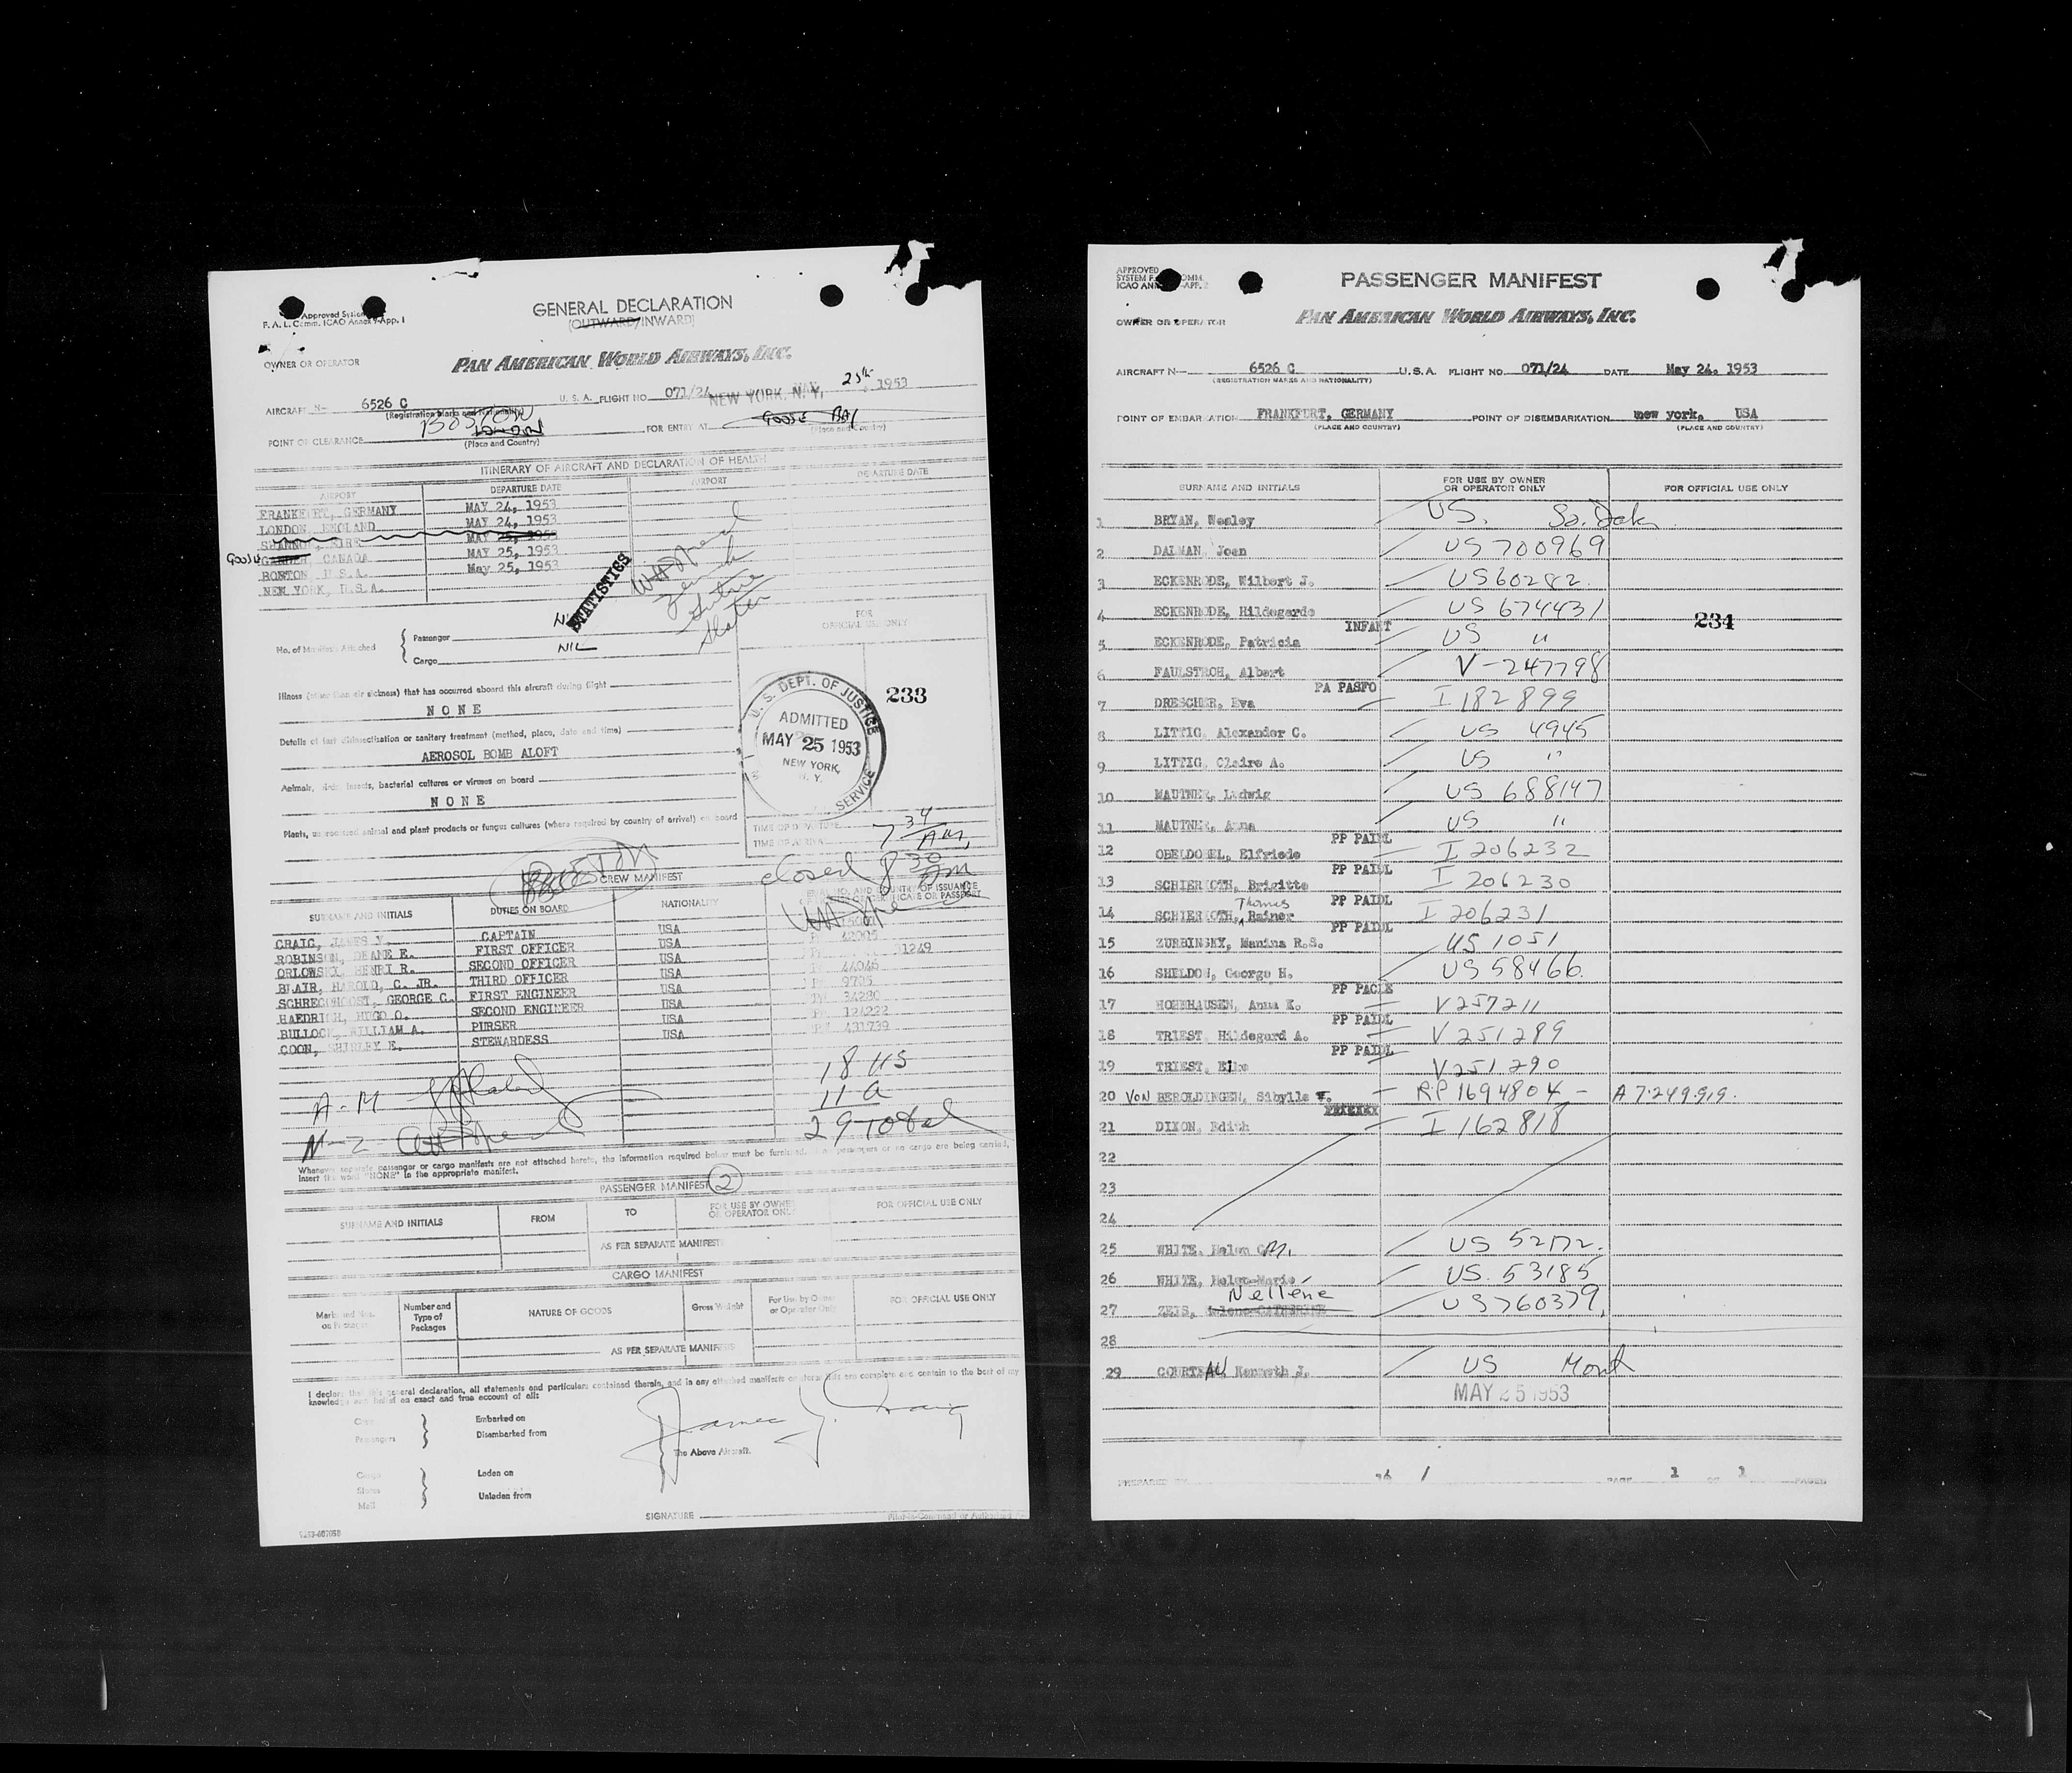 Approved System
F. A. L. Comm. ICAO Annex 9-App. 1
GENERAL DECLARATION
(OUTWARD/INWARD)
OWNER OR OPERATOR
PAN AMERICAN WORLD AIRWAYS, INC.
AIRCRAFT N- 6526 C U. S. A. FLIGHT NO. 071/24 NEW YORK, N. Y. 25th 1953
(Registration Marks and Nationality)
BOSTON
LONDON
POINT OF CLEARANCE FOR ENTRY AT GOOSE BAY
(Place and Country) (Place and Country)
ITINERARY OF AIRCRAFT AND DECLARATION OF HEALTH
AIRPORT DEPARTURE DATE AIRPORT DEPARTURE DATE
FRANKFURT, GERMANY MAY 24, 1953
LONDON, ENGLAND MAY 24, 1953
SHANNON, EIRE MAY 25, 1953
Goose GANDER, CANADA MAY 25, 1953
BOSTON, U.S.A. May 25, 1953
NEW YORK, U.S.A.
STATISTICS
No. of Manifests Attached { Passenger
Cargo NIL
FOR
OFFICIAL USE ONLY
233
Illness (other than air sickness) that has occurred aboard this aircraft during flight
NONE
Details of last disinsectisation or sanitary treatment (method, place, date and time)
AEROSOL BOMB ALOFT
Animals, birds, insects, bacterial cultures or viruses on board
NONE
Plants, unprocessed animal and plant products or fungus cultures (where required by country of arrival) on board
U. S. DEPT. OF JUSTICE
ADMITTED
MAY 25 1953
NEW YORK,
N. Y.
SERVICE
TIME OF DEPARTURE
TIME OF ARRIVAL 7 34 AM
closed 8 30 am
BOSTON
CREW MANIFEST
SURNAME AND INITIALS DUTIES ON BOARD NATIONALITY
CRAIG, JAMES Y. CAPTAIN USA
ROBINSON, DEANE E. FIRST OFFICER USA 31249
ORLOWSKI, HENRI R. SECOND OFFICER USA 44046
BLAIR, HAROLD, C. JR. THIRD OFFICER USA 9705
SCHRECONGOST, GEORGE C. FIRST ENGINEER USA 34280
HAEDRICH, HUGO O. SECOND ENGINEER USA 124222
BULLOCK, WILLIAM A. PURSER USA 431739
COON, SHIRLEY E. STEWARDESS USA
18 US
11 A
29 Total
A-M
N-Z
Whenever separate passenger or cargo manifests are not attached hereto, the information required below must be furnished. If no passengers or no cargo are being carried,
insert the word "NONE" in the appropriate manifest.
PASSENGER MANIFEST 2
SURNAME AND INITIALS FROM TO FOR USE BY OWNER OR OPERATOR ONLY FOR OFFICIAL USE ONLY
AS PER SEPARATE MANIFEST
CARGO MANIFEST
Marks and Nos. on Packages Number and Type of Packages NATURE OF GOODS Gross Weight For Use by Owner or Operator Only FOR OFFICIAL USE ONLY
AS PER SEPARATE MANIFEST
I declare that this general declaration, all statements and particulars contained therein, and in any attached manifests or stores lists are complete and contain to the best of my
knowledge and belief an exact and true account of all:
Crew Embarked on
Passengers Disembarked from
The Above Aircraft.
Cargo Laden on
Stores
Mail Unladen from
James Y. Craig
SIGNATURE
Pilot-in-Command or Authorized
APPROVED
SYSTEM F. COMM.
ICAO ANNEX -APP. 2
PASSENGER MANIFEST
OWNER OR OPERATOR PAN AMERICAN WORLD AIRWAYS, INC.
AIRCRAFT N- 6526 C U.S.A. FLIGHT NO. 071/24 DATE May 24, 1953
(REGISTRATION MARKS AND NATIONALITY)
POINT OF EMBARKATION FRANKFURT, GERMANY POINT OF DISEMBARKATION new york, USA
(PLACE AND COUNTRY) (PLACE AND COUNTRY)
SURNAME AND INITIALS FOR USE BY OWNER OR OPERATOR ONLY FOR OFFICIAL USE ONLY
1 BRYAN, Wesley US. So. Dak.
2 DALMAN, Joan US 700969
3 ECKENRODE, Wilbert J. US 60282.
4 ECKENRODE, Hildegarde US 674431
234
INFANT
5 ECKENRODE, Patricia US "
6 FAULSTROH, Albert V-247798
PA PASFO
7 DRESCHER, Eva I 182899
8 LITTIG, Alexander C. US 4945
9 LITTIG, Claire A. US "
10 MAUTNER, Ludwig US 688147
11 MAUTNER, Anna US "
PP PAIDL
12 OBELDOBEL, Elfriede I 206232
PP PAIDL
13 SCHIERIOTH, Brigitte I 206230
Thomas PP PAIDL
14 SCHIERIOTH, Rainer I 206231
PP PAIDL
15 ZURBINSKY, Manina R.S. US 1051
16 SHELDON, George H. US 58466.
PP PACLE
17 HOHNHAUSEN, Anna K. V257211
PP PAIDL
18 TRIEST, Hildegard A. V 251289
PP PAIDL
19 TRIEST, Elke V251290
20 VON BEROLDINGEN, Sibylle F. RP 1694804 - A 7.249.919.
21 DIXON, Edith I 162818
22
23
24
25 WHITE, Helen M. US 52172.
26 WHITE, Helen-Marie US. 53185
Nellene
27 ZEIS, US 760379.
28
29 COURTEAU, Kenneth J. US Mont
MAY 25 1953
PREPARED BY PAGE 1 OF 1 PAGES